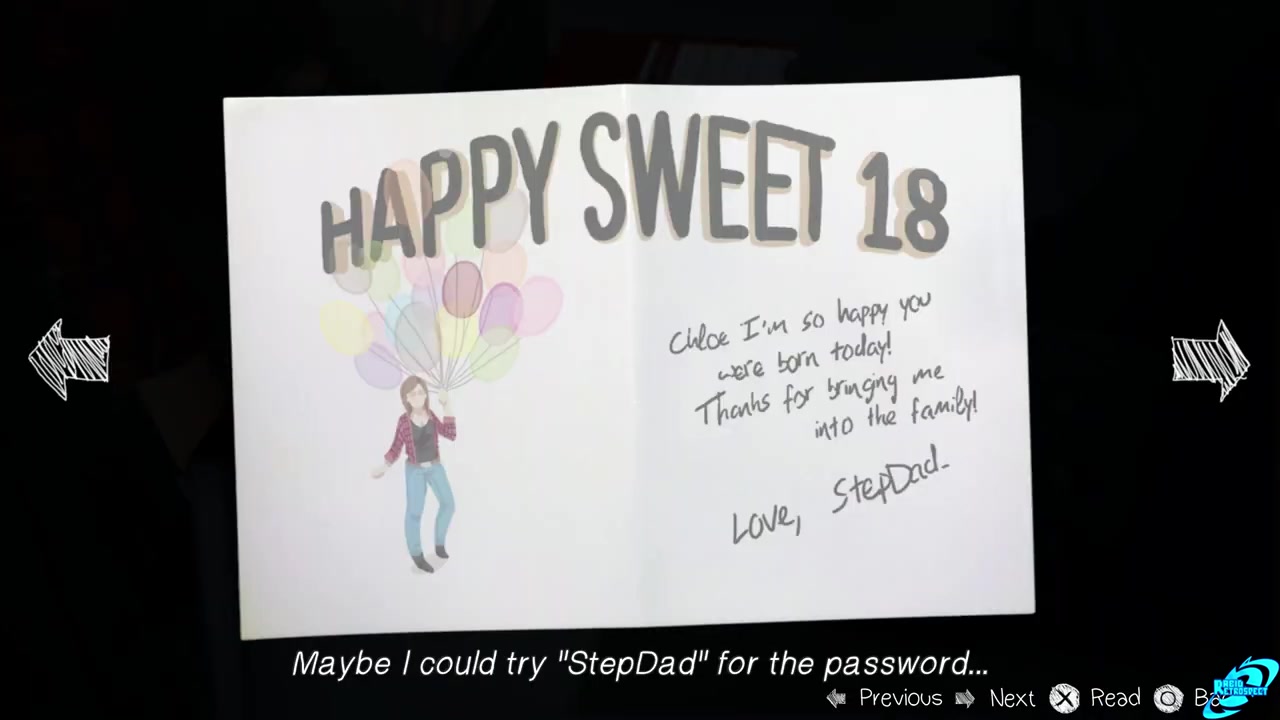 HAPPY SWEET 18
Chloe I'm so happy you
were born today!
Thanks for bringing me
into the family!
Love, StepDad-
Maybe I could try "StepDad" for the password...
Previous Next X Read O Ba
RACID
RETROSPECT